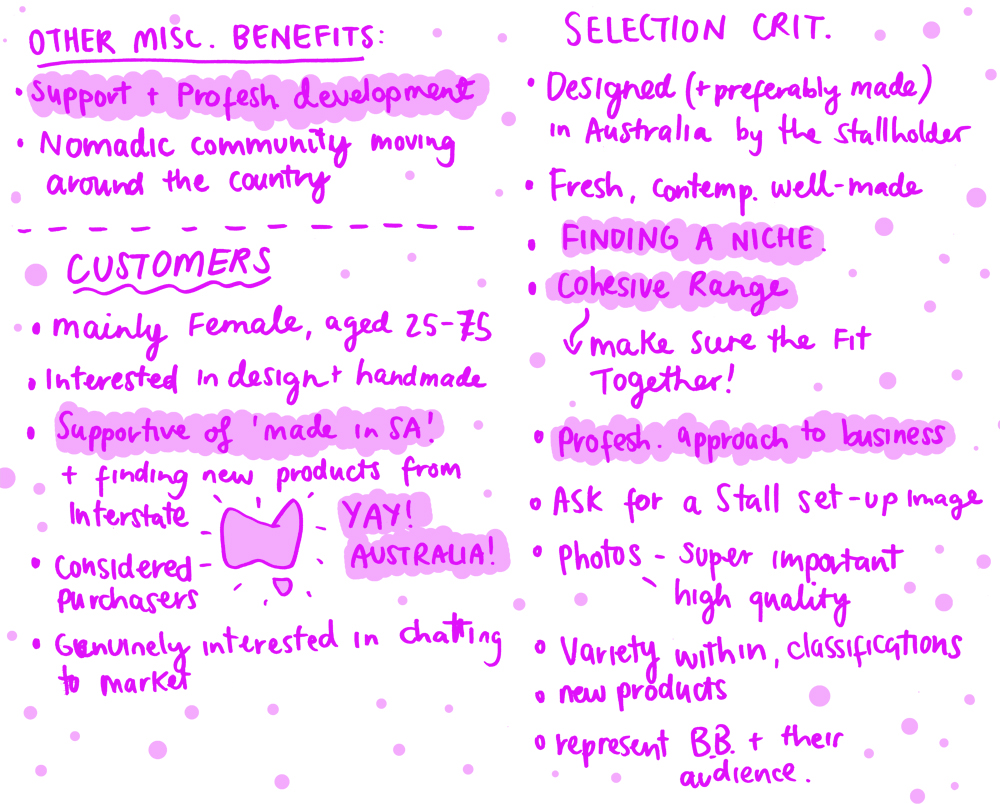 OTHER MISC. BENEFITS:
• Support + Profesh development
• Nomadic community moving
around the country
CUSTOMERS
• mainly Female, aged 25-75
• Interested in design + handmade
• Supportive of 'made in SA!'
+ finding new products from
Interstate
YAY!
AUSTRALIA!
• Considered
purchasers
• Genuinely interested in chatting
to market
SELECTION CRIT.
• Designed (+ preferably made)
in Australia by the stallholder
• Fresh, contemp. well-made
• FINDING A NICHE.
• Cohesive Range
make sure the Fit
Together!
• Profesh. approach to business
• Ask for a Stall set-up image
• Photos - super important
high quality
• Variety within, classifications
• new products
• represent B.B. + their
audience.